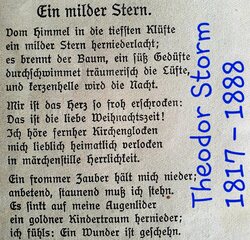 Ein milder Stern.
Vom Himmel in die tiefsten Klüfte
ein milder Stern herniederlacht;
es brennt der Baum, ein süß Gedüfte
durchschwimmet träumerisch die Lüfte,
und kerzenhelle wird die Nacht.
Mir ist das Herz so froh erschrocken:
Das ist die liebe Weihnachtszeit!
Ich höre fernher Kirchenglocken
mich lieblich heimatlich verlocken
in märchenstille Herrlichkeit.
Ein frommer Zauber hält mich nieder;
anbetend, staunend muß ich stehn.
Es sinkt auf meine Augenlider
ein goldner Kindertraum hernieder;
ich fühls: Ein Wunder ist geschehn.
Theodor Storm
1817 – 1888